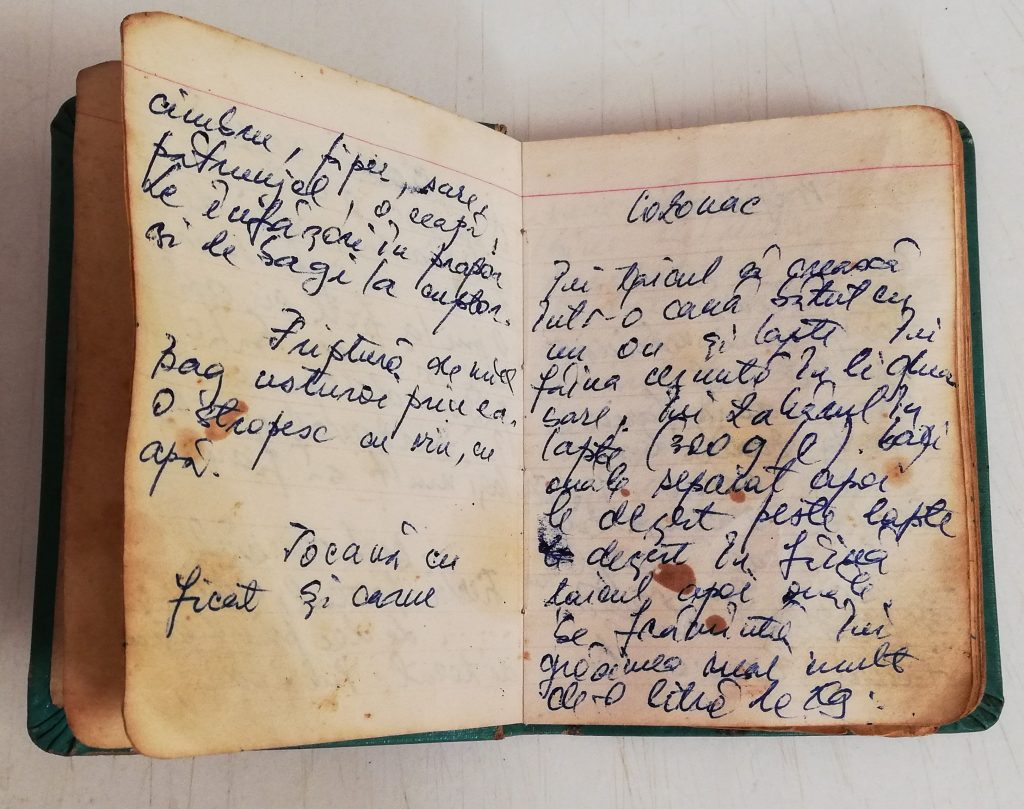 cimbru, piper, sare,
pătrunjel, o ceapă,
le înfăzori în prapor
și le bagi la cuptor.
Friptură de miel
Bag usturoi prin ea.
O stropesc cu vin, cu
apă.
Tocană cu
ficat și carne
Cozonac
Pui să crească
într-o cană bătut cu
un ou și lapte Pui
făina cernută în
sare, Pui zahărul în
lapte (300 g l) bagi
ouăle separat apoi
le deșert peste lapte
deșert în făina
apoi ouăle.
Se frămîntă Pui
grăsimea mai mult
de-o litră de kg.